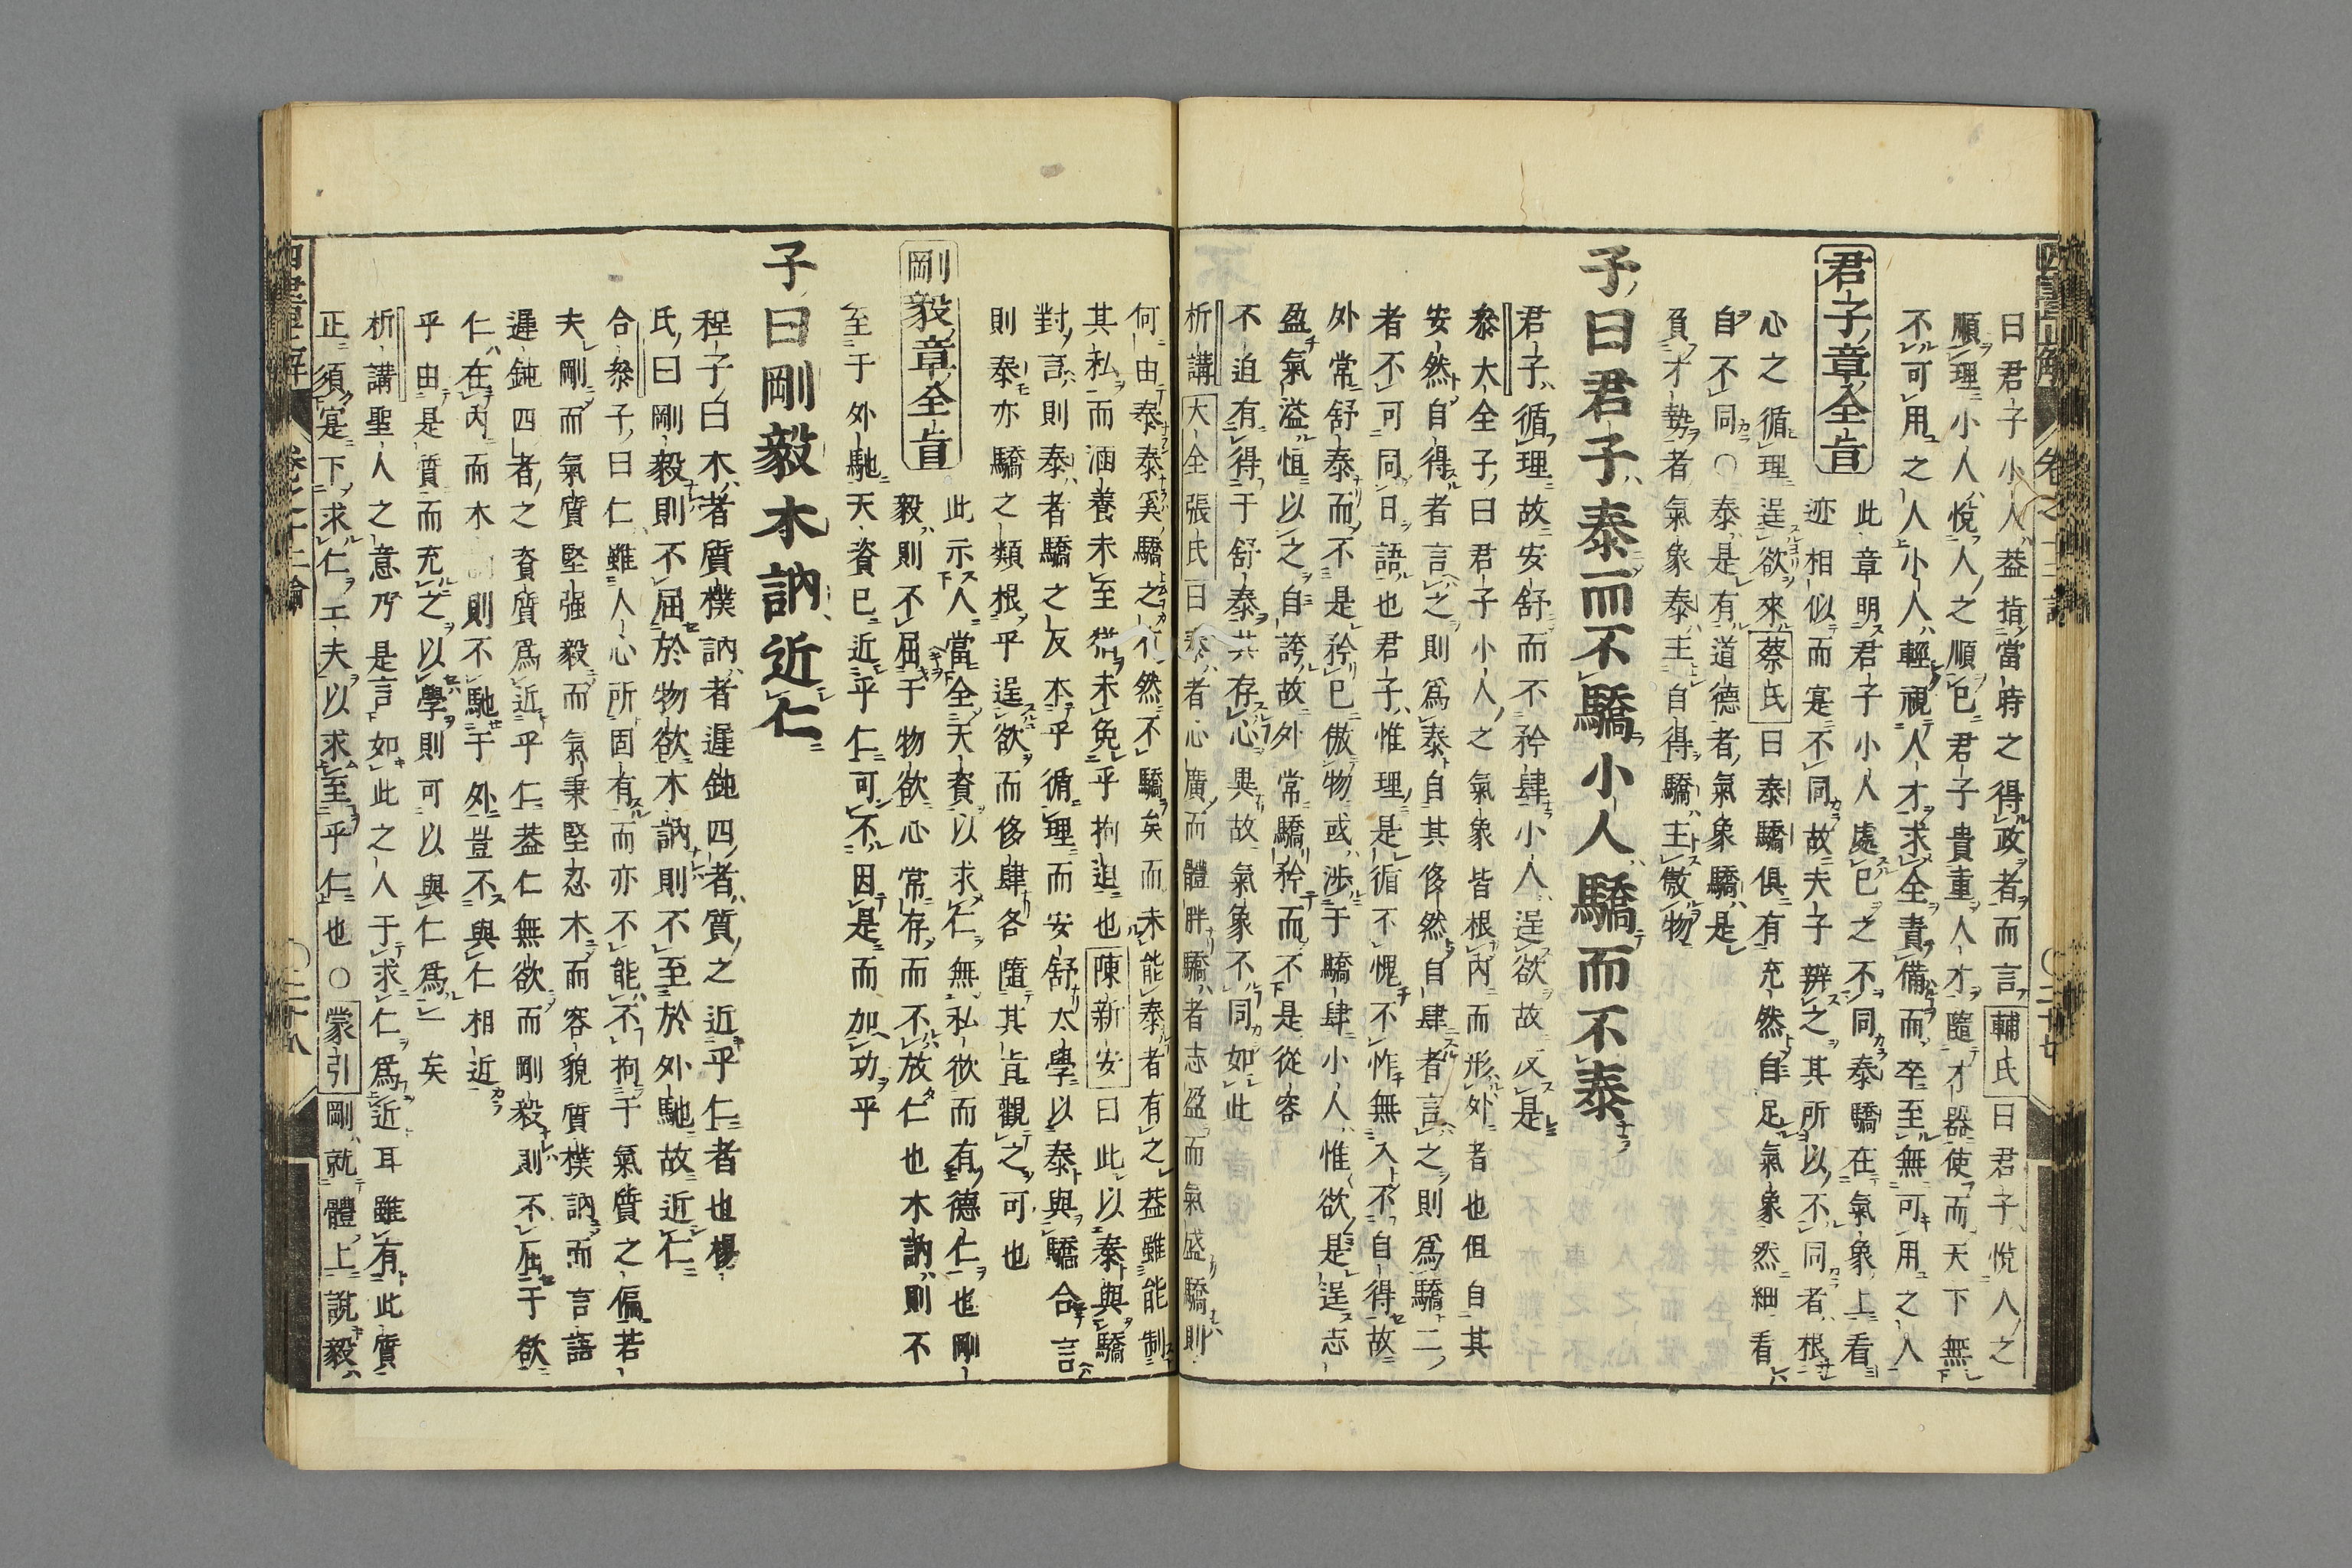 曰君子小人葢指當時之得政者而言輔氏曰君子悅人之
順理小人悅人之順已君子貴重人才隨才器使而天下無
不可用之人小人輕視人才求全責備而卒至無可用之人
君子章全旨
此章明君子小人處已之不同泰驕在氣象上看
迹相似而寔不同故夫子辨之其所以不同者根
心之循理逞欲來蔡氏曰泰驕俱有充然自足氣象然細看
自不同○泰是有道德者氣象驕是
負才勢者氣象泰主自得驕主傲物
子曰君子泰而不驕小人驕而不泰
君子循理故安舒而不矜肆小人逞欲故反是
叅大全子曰君子小人之氣象皆根內而形外者也但自其
安然自得者言之則爲泰自其侈然自肆者言之則爲驕二
者不可同日語也君子惟理是循不愧不怍無入不自得故
外常舒泰而不是矜已傲物或涉于驕肆小人惟欲是逞志
盈氣溢恒以之自誇故外常驕矜而不是從容
不迫有得于舒泰其存心異故氣象不同如此
析講大全張氏曰泰者心廣而體胖驕者志盈而氣盛驕則
何由泰泰奚驕之有然不驕矣而未能泰者有之葢雖能制
其私而涵養未至猶未免乎拘迫也陳新安曰此以泰與驕
對言則泰者驕之反本乎循理而安舒太學以泰與驕合言
則泰亦驕之類根乎逞欲而侈肆各隨其旨觀之可也
剛毅章全旨
此示人當全天資以求仁無私欲而有德仁也剛
毅則不屈于物欲心常存而不放仁也木訥則不
至于外馳天資已近乎仁可不因是而加功乎
子曰剛毅木訥近仁
程子曰木者質樸訥者遲鈍四者質之近乎仁者也楊
氏曰剛毅則不屈於物欲木訥則不至於外馳故近仁
合叅子曰仁雖人心所固有而亦不能不拘于氣質之偏若
夫剛而氣質堅强毅而氣秉堅忍木而容貌質樸訥而言語
遲鈍四者之資質爲近乎仁葢仁無欲而剛毅則不屈于欲
仁在內而木訥則不馳于外豈不與仁相近
乎由是質而充之以學則可以與仁爲一矣
析講聖人之意乃是言如此之人于求仁爲近耳雖有此質
正須寔下求仁工夫以求至乎仁也○蒙引剛就體上說毅